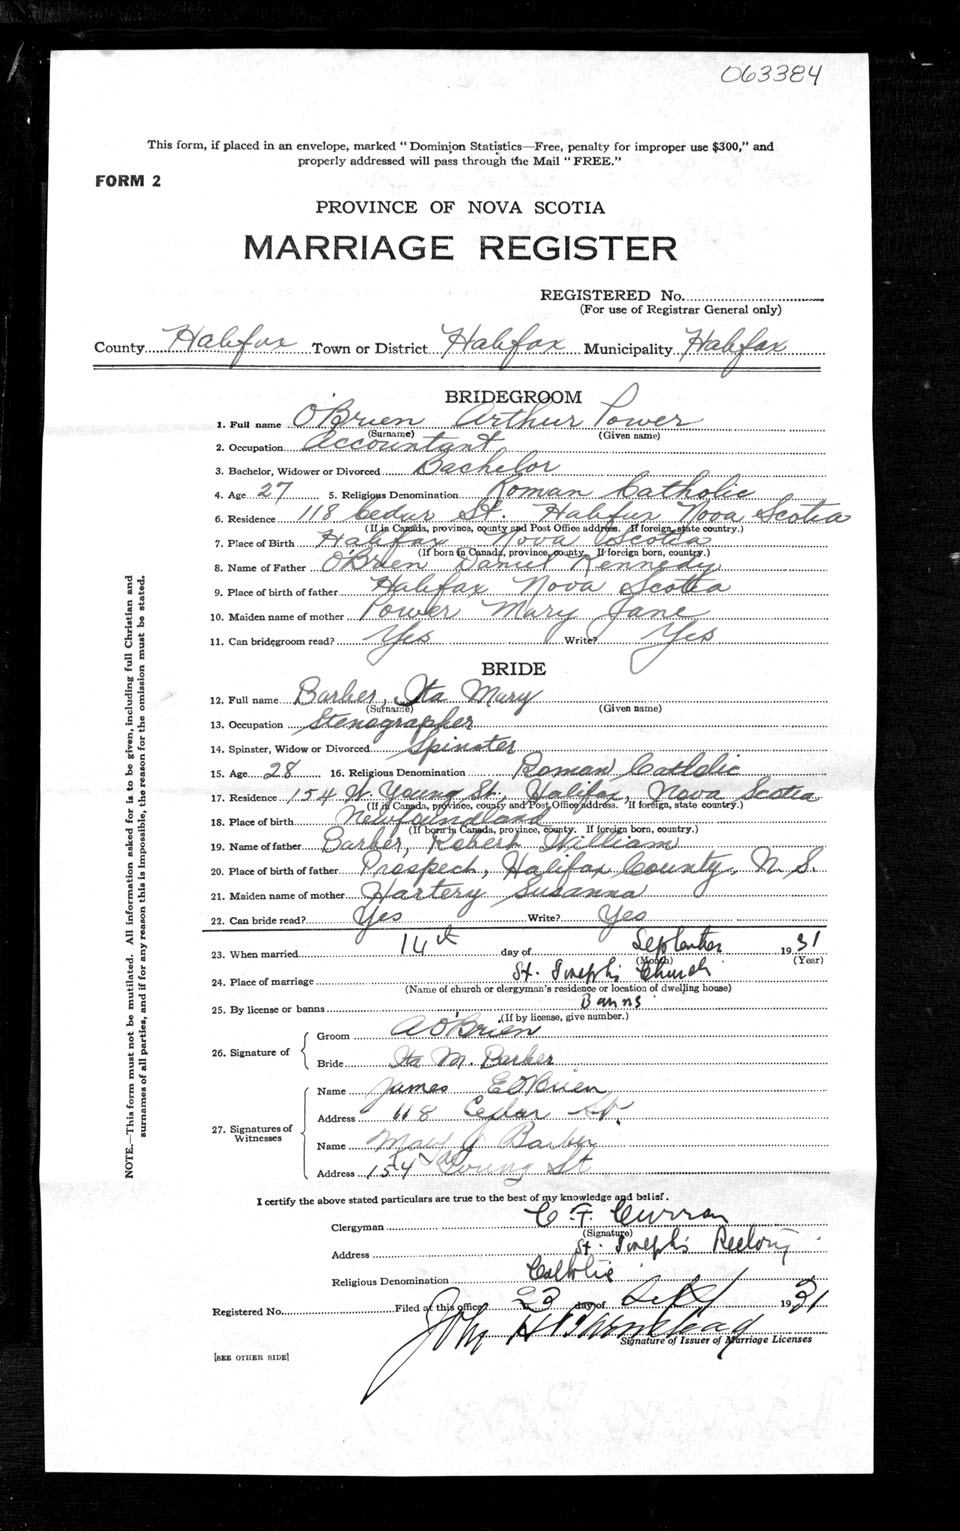 063384
This form, if placed in an envelope, marked "Dominion Statistics—Free, penalty for improper use $300," and
properly addressed will pass through the Mail "FREE."
FORM 2
PROVINCE OF NOVA SCOTIA
MARRIAGE REGISTER
REGISTERED No.
(For use of Registrar General only)
County Halifax Town or District Halifax Municipality Halifax
BRIDEGROOM
1. Full name O'Brien Arthur Power
(Surname) (Given name)
2. Occupation Accountant
3. Bachelor, Widower or Divorced Bachelor
4. Age 27 5. Religious Denomination Roman Catholic
6. Residence 118 Cedar St. Halifax Nova Scotia
(If in Canada, province, county and Post Office address. If foreign, state country.)
7. Place of Birth Halifax Nova Scotia
(If born in Canada, province, county. If foreign born, country.)
8. Name of Father O'Brien Daniel Kennedy
9. Place of birth of father Halifax Nova Scotia
10. Maiden name of mother Power Mary Jane
11. Can bridegroom read? Yes Write? Yes
BRIDE
12. Full name Barber, Ita Mary
(Surname) (Given name)
13. Occupation Stenographer
14. Spinster, Widow or Divorced Spinster
15. Age 28 16. Religious Denomination Roman Catholic
17. Residence 154 W. Young St., Halifax, Nova Scotia
(If in Canada, province, county and Post Office address. If foreign, state country.)
18. Place of birth Newfoundland
(If born in Canada, province, county. If foreign born, country.)
19. Name of father Barber, Robert William
20. Place of birth of father Prospect, Halifax County, N. S.
21. Maiden name of mother Hartery Susanna
22. Can bride read? Yes Write? Yes
23. When married 14th day of September 1931
(Month) (Year)
24. Place of marriage St. Joseph's Church
(Name of church or clergyman's residence or location of dwelling house)
25. By license or banns Banns
(If by license, give number.)
26. Signature of
Groom A O'Brien
Bride Ita M. Barber
27. Signatures of Witnesses
Name James E O'Brien
Address 118 Cedar St.
Name J Barber
Address 154 Young St
I certify the above stated particulars are true to the best of my knowledge and belief.
Clergyman C. F. Curran
(Signature)
Address St. Joseph's Rectory
Religious Denomination Catholic
Registered No. Filed at this office 23 day of Sept 1931
John
Signature of Issuer of Marriage Licenses
[SEE OTHER SIDE]
NOTE.—This form must not be mutilated. All information asked for is to be given, including full Christian and
surnames of all parties, and if for any reason this is impossible, the reason for the omission must be stated.